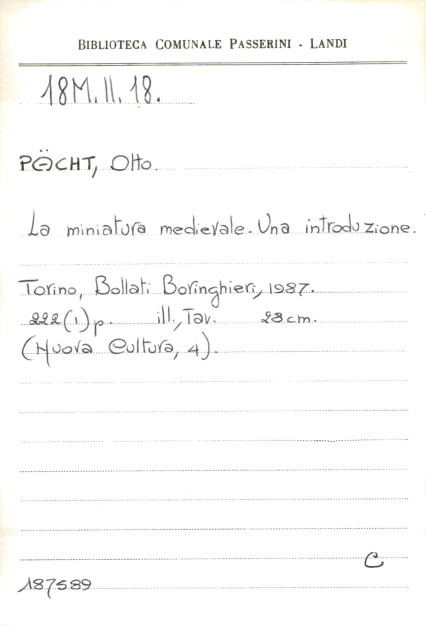 BIBLIOTECA COMUNALE PASSERINI - LANDI
18M.II.18.
PÄCHT, Otto.
La miniatura medievale. Una introduzione.
Torino, Bollati Boringhieri, 1987.
222(1)p. ill., Tav. 23cm.
(Nuova Cultura, 4).
C
187589